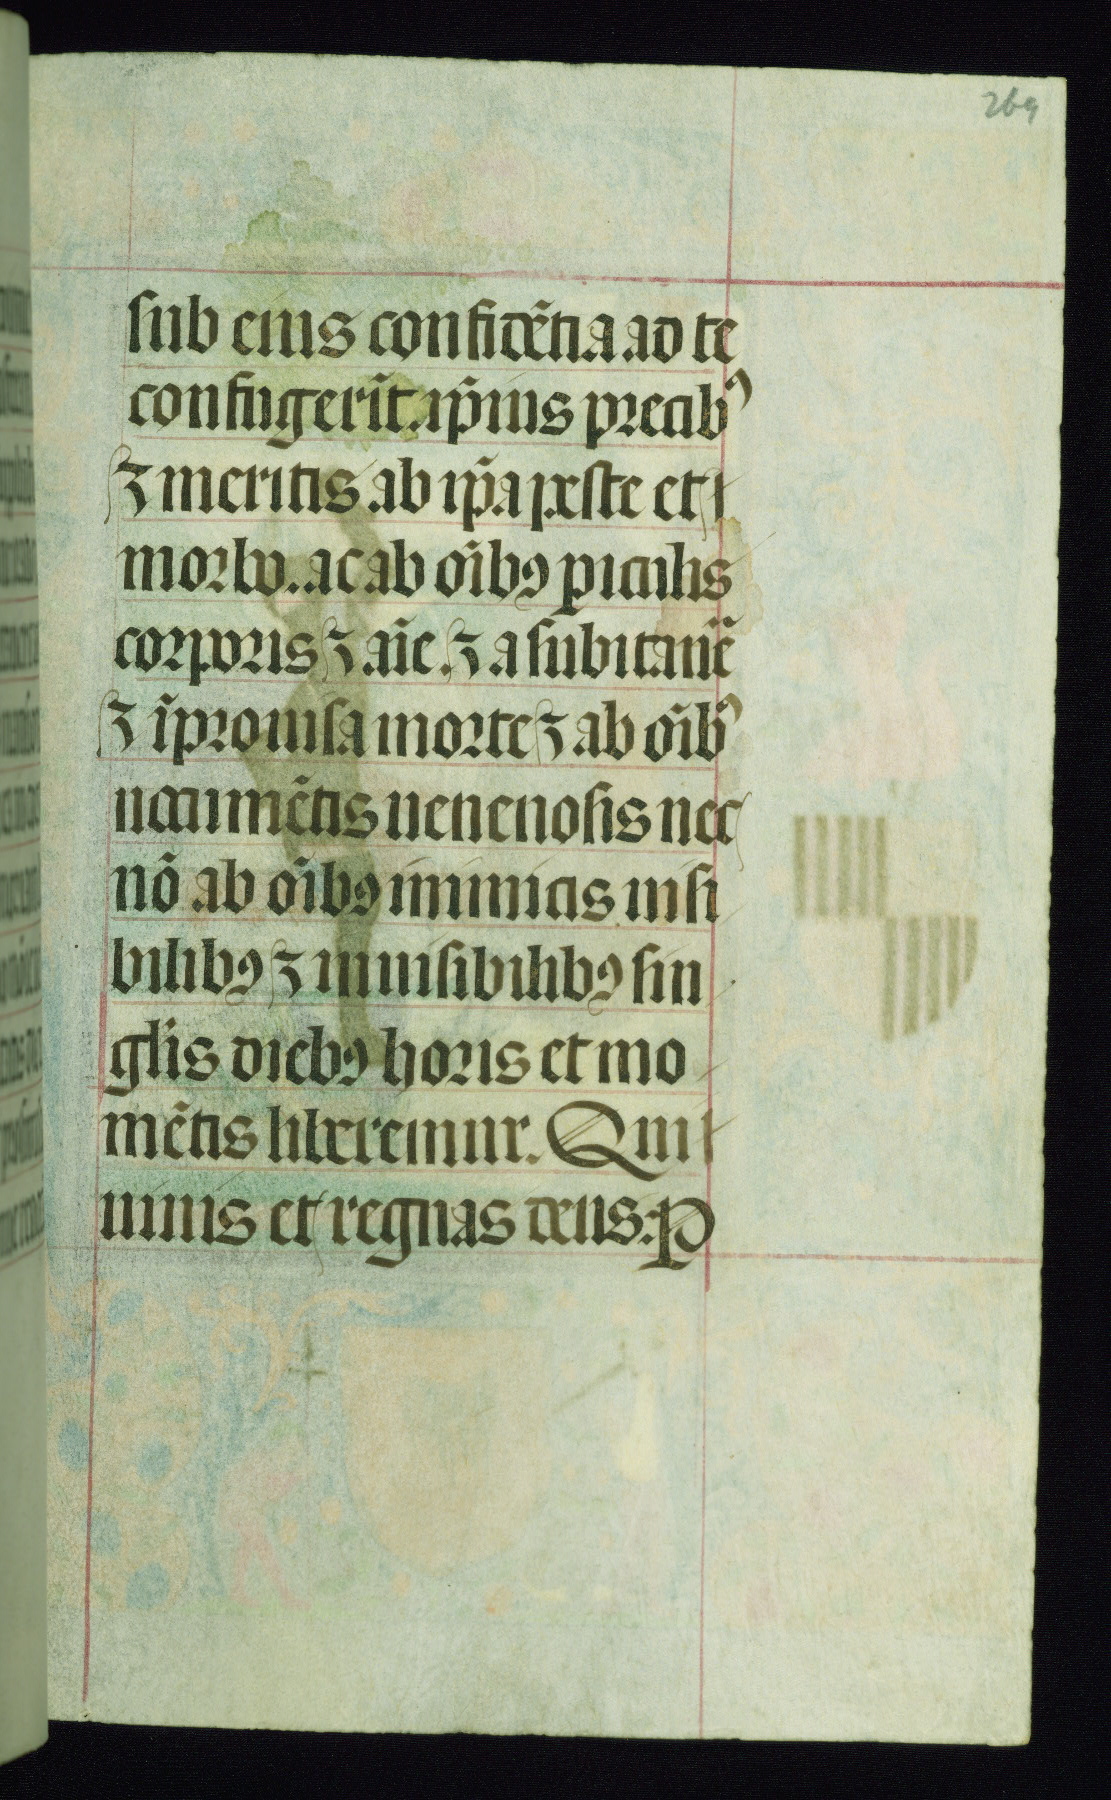 269
sub eius confidẽtia ad te
confugerĩt. ip̃ius precibꝰ
⁊ meritis ab ip̃a peste et
morbo. ac ab oĩbꝯ piculis
corporis ⁊ aĩe. ⁊ a subitanẽ
⁊ ĩprouisa morte ⁊ ab oĩbꝰ
nocumẽtis uenenosis nec
nõ ab oĩbꝯ inimicis uisi
bilibꝯ ⁊ inuisibilibꝯ sin
glis diebꝯ horis et mo
mẽtis liberemur. Qui
uiuis et regnas deus: P